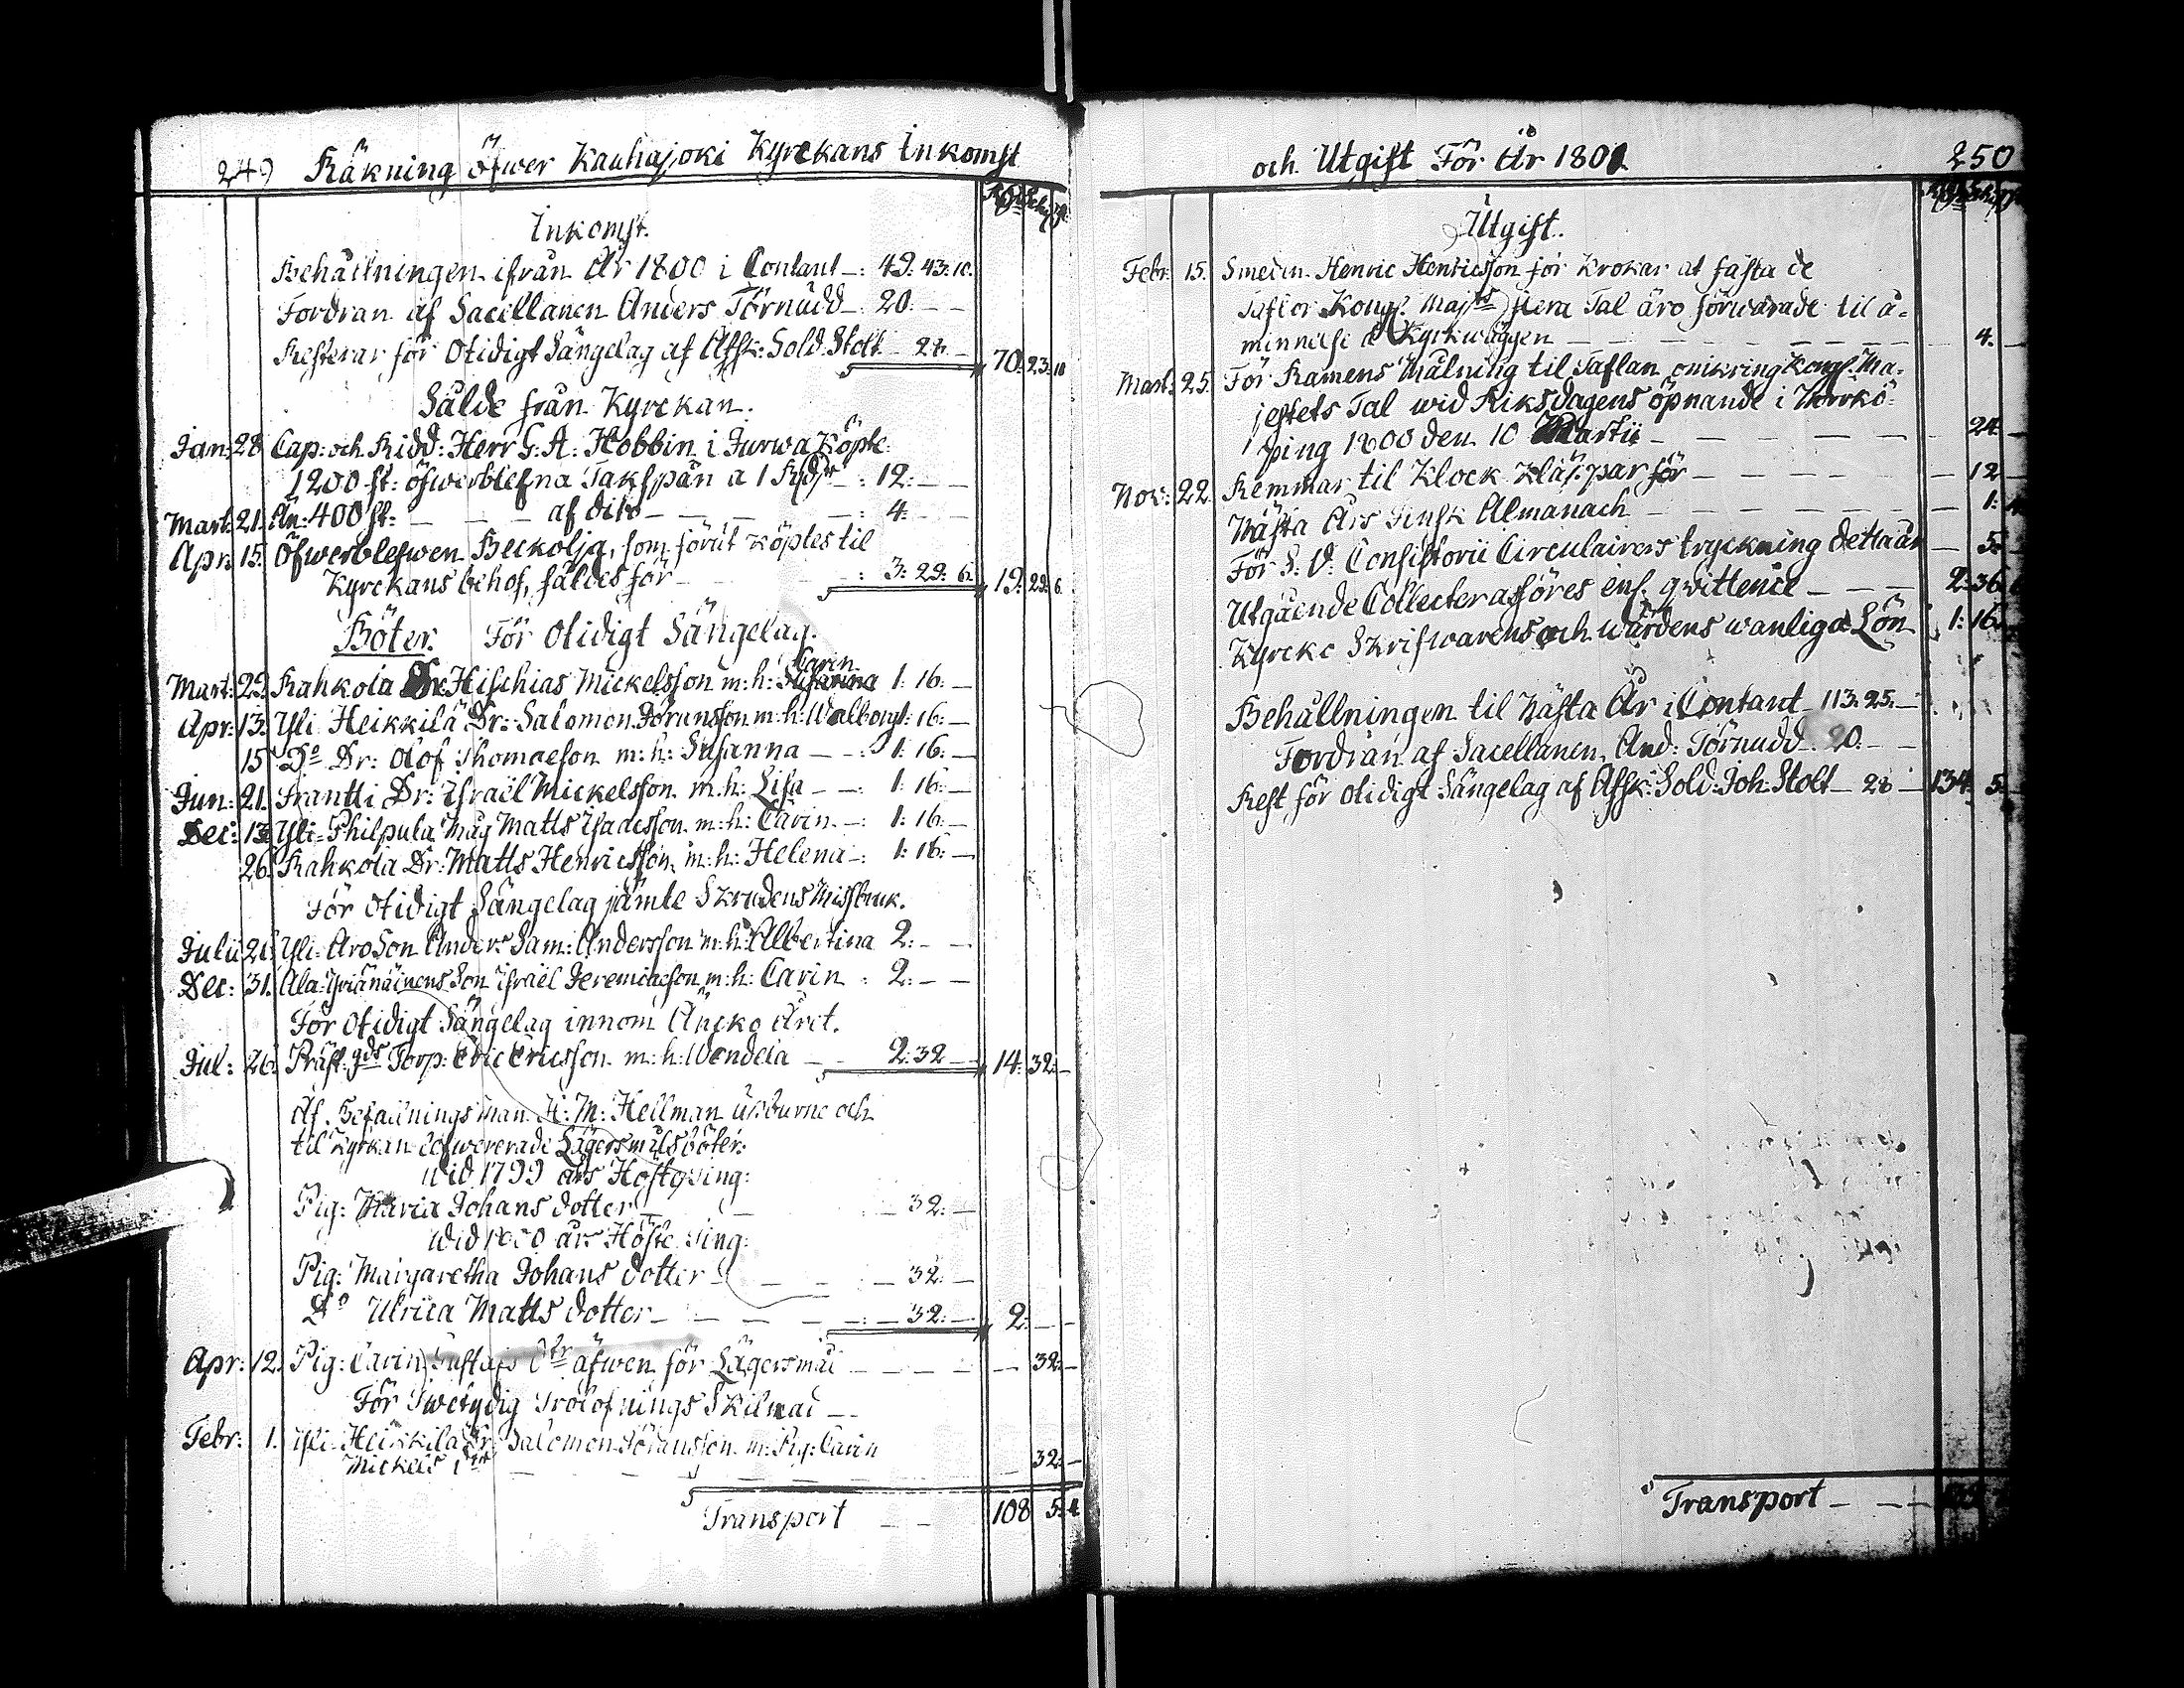 249 Räkning öfwer Kauhajoki Kyrckans Inkomst
Inkomst.
Behållningen ifrån År 1800 i Contant —: 49: 43: 10.
Fordran af Sacellanen Anders Törnudd —: 20: — —
Resterar för Otidigt Sängelag af Afsk: Sold: Stolt — 28: — 70: 23: 10
Sålde från Kyrckan.
Jan: 28 Cap: och Ridd: Herr G: A: Hobbin i Jurwa Köpte
1200 st: öfwerblefna Takspån a 1 Rdr —: 12: — —
Mart: 21. Än: 400 st: — — — af dito — — —: 4: — —
Apr: 15. Öfwerblefwen Beckolja, som förut Köptes til
Kyrckans behof, såldes för — — —: 3: 29: 6. 19: 29: 6.
Böter. För Otidigt Sängelag.
Carin
Mart: 29. Rahkola Dr: Hischias Mickelsson m: h: 1: 16: —
Apr: 13. Yli Heikkilä Dr: Salomon Göransson m: h: Walborg 1: 16: —
15 Do Dr: Olof Thomaeson m: h: Susanna — —: 1: 16: —
Jun: 21. Frantti Dr: Israël Mickelsson m: h: Lisa — —: 1: 16: —
Dec: 13. Yli-Philpula Måg Matts Isacsson m: h: Carin —: 1: 16: —
26. Rahkola Dr: Matts Henricsson m: h: Helena —: 1: 16: —
För Otidigt Sängelag jämte Skrudens Missbruk.
Julii 21. Yli-Aro Son Anders Sam: Andersson m: h: Albertina 2: — —
Dec: 31. Ala Son Israël Jeremiaeson m: h: Carin: 2: — —
För Otidigt Sängelag innom Äncko Året.
Jul: 26. Präst: gds Torp: Eric Ericsson m: h: Wendela — — 2: 32 — 14: 32: —
Af Befallningsman H: M: Hellman upburne och
til Kyrkan lefwererade Lägersmåls böter:
wid 1799 års Höste ting:
Pig: Maria Johans dotter — — — 32: —
Wid 1800 års Höste ting:
Pig: Margaretha Johans dotter — — — — 32: —
Do Ulrica Matts dotter — — — — — 32: — 2: — —
Apr: 12. Pig: Carin Gustafs dtr äfwen för Lägersmål — — — — — 32: —
För Twetydig Trolofnings Skilnad — —
Febr: 1. Yli-Heikkilä Dr: Salomon Göransson m: Pig: Carin
Mickels dtr — — — — — 32: —
Transport — — 108 5: 4
och Utgift För År 1801 250
Utgift.
Febr: 15. Smeden Henric Henricsson för Krokar at fästa de
Taflor Kongl. Majts flera Tal äro förwarade til å-
minnelse å Kyrkwäggen — — — — — — — 4: —
Mart: 25. För Ramens Målning til Taflan omkring Kongl. Ma-
jestets Tal wid Riksdagens öpnande i Norrkö-
ping 1800 den 10 Martii — — — — — 24: —
Nov: 22. Remmar til Klock Kläppar för — — — — — 12 —
Nästa Års Finsk Almanach — — — — — — — 1:
För S: V: Consistorii Circulairers tryckning detta år — 5:
Utgående Collecter afföres enl. qvittence — — — 2: 36:
Kyrcko Skrifwarens och Wärdens wanliga Lön 1: 16:
Behållningen til Nästa År i Contant — 113: 25: —
Fordran af Sacellanen And: Törnudd — 20: — —
Rest för otidigt Sängelag af Afsk: Sold: Joh: Stolt — 28 — 134: 5:
Transport — — —